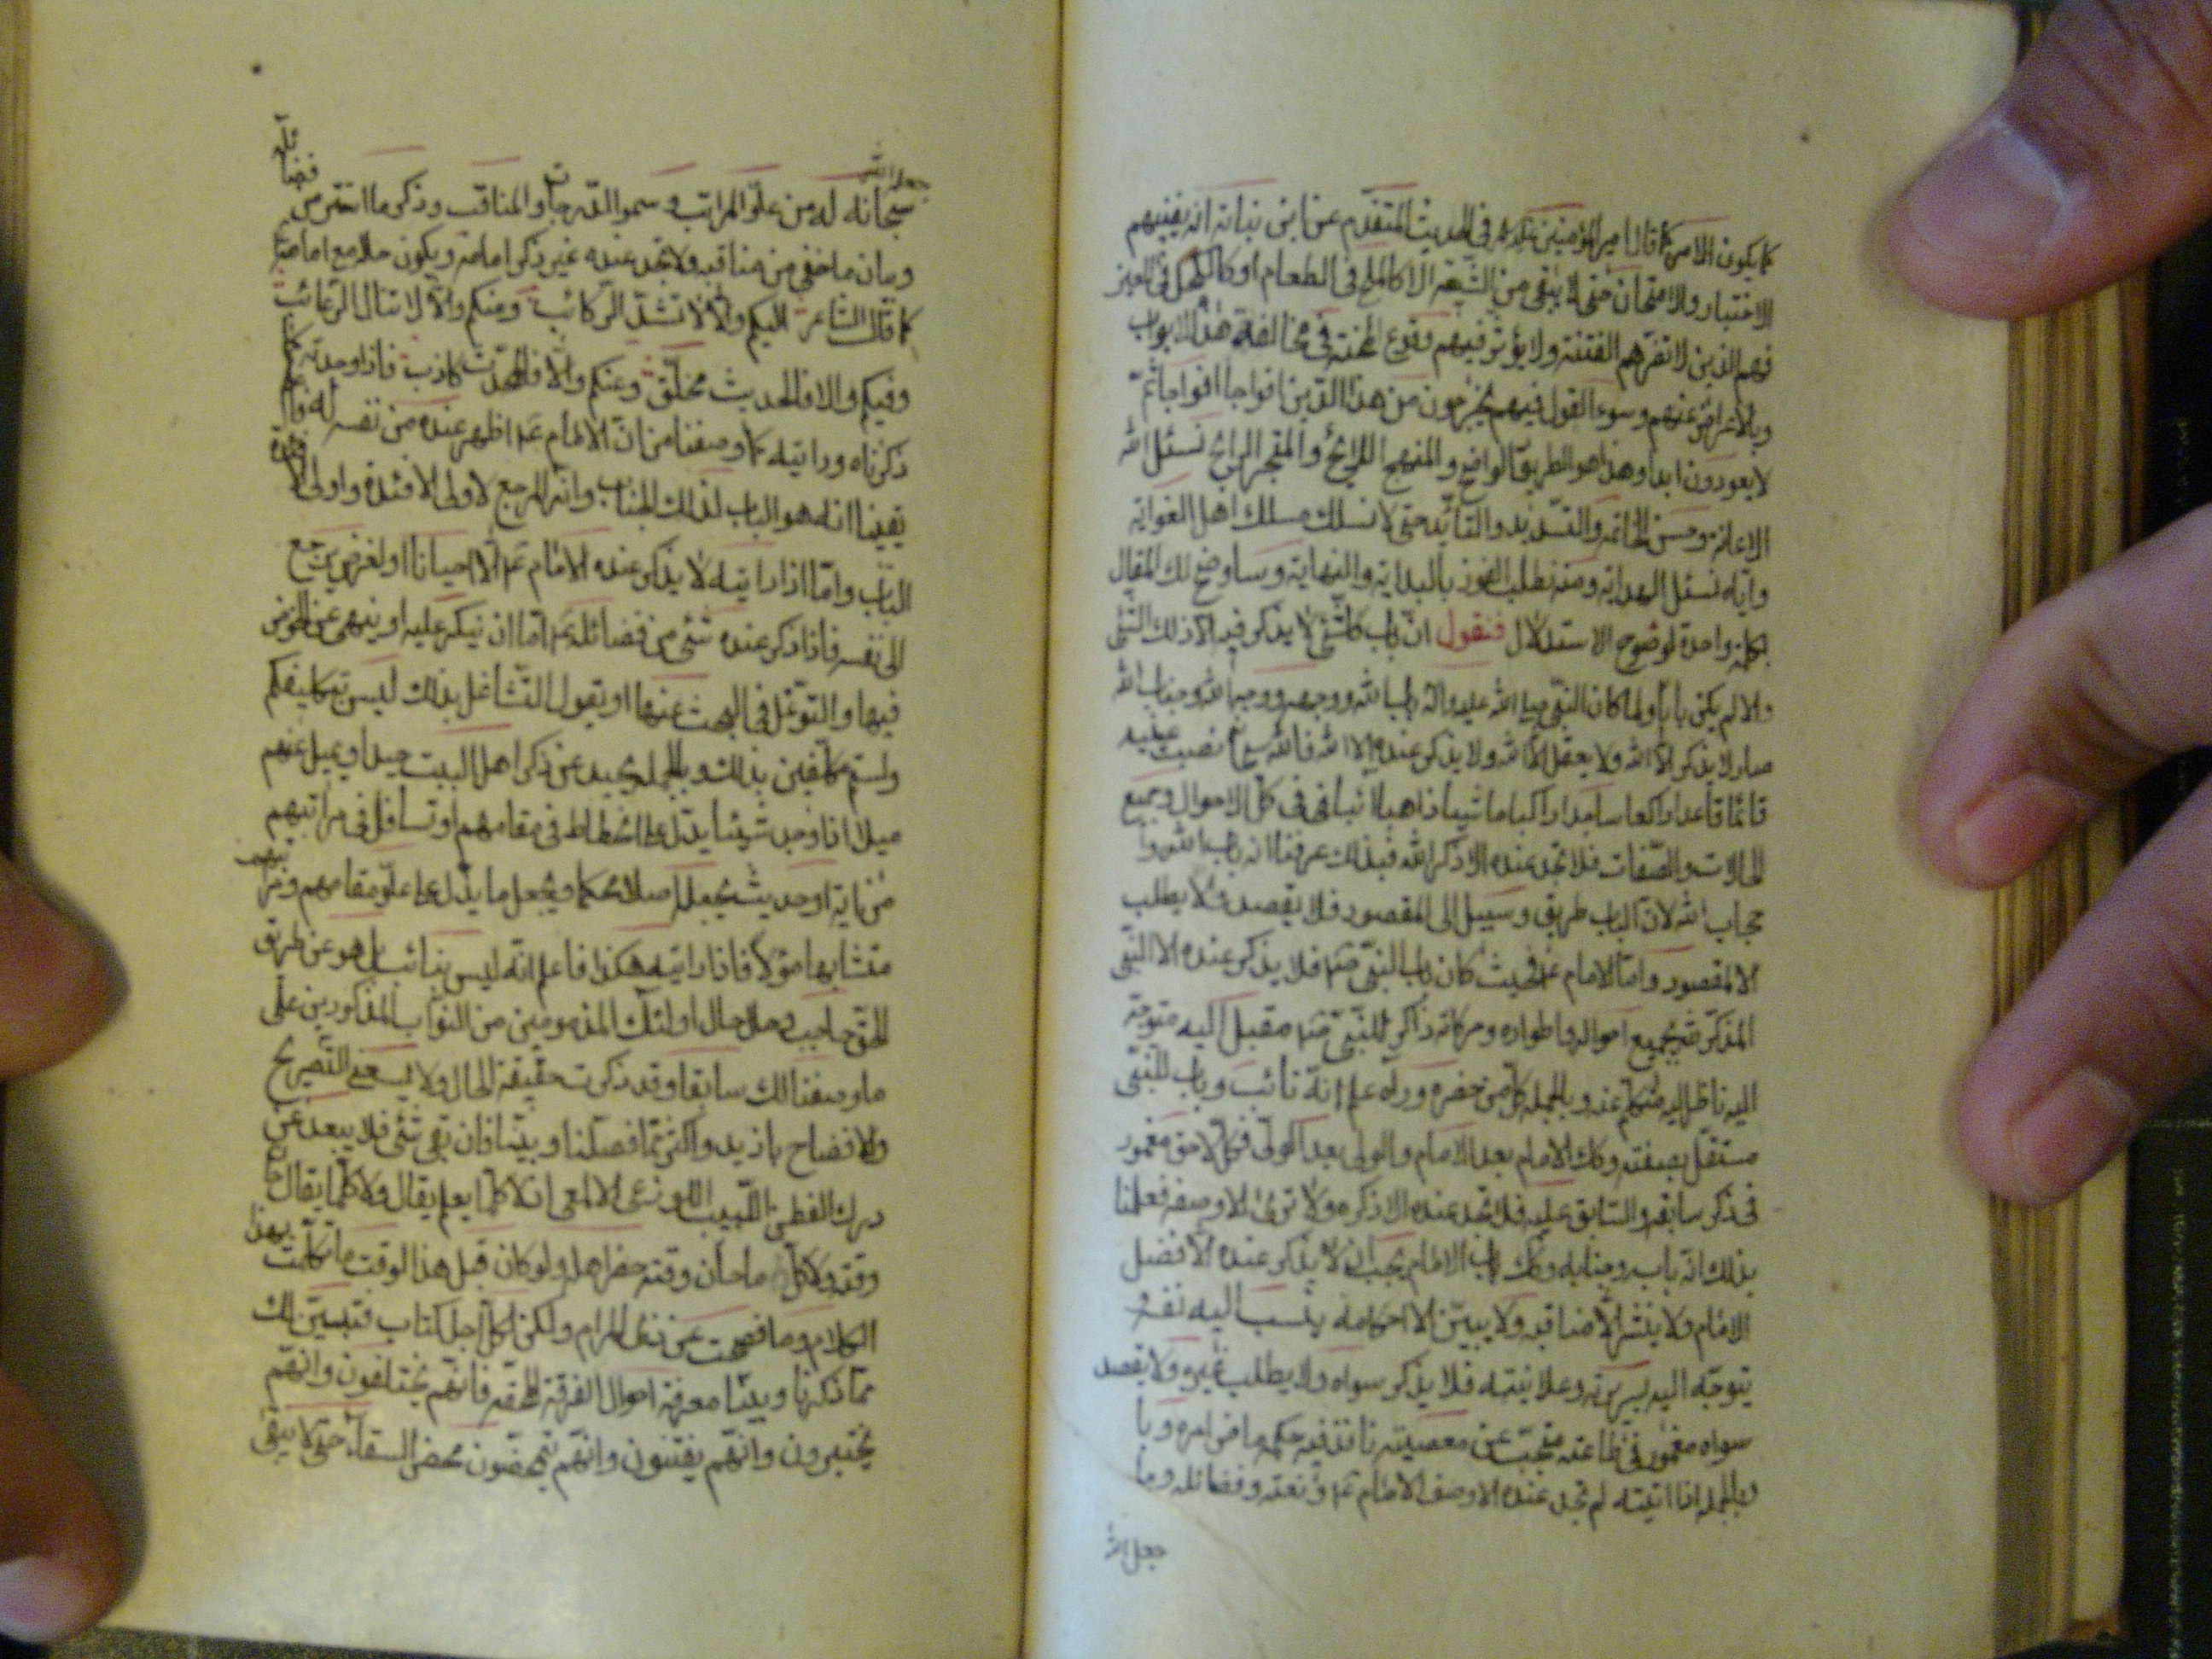 كما يكون الامر كما قال امير المؤمنين في الحديث المتقدم عن ابن نباته انه يفنيهم
الاختبار والامتحان حتى لا يبقى من الشيعة الا كالملح في الطعام او كالكحل في العين
فهم الذين لا تضرهم الفتنة ولا يؤثر فيهم وقوع المحنة في مخالفة هذه الابواب
وبالاعراض عنهم وسوء القول فيهم يخرجون من هذا الدين افواجا افواجا ثم
لا يعودون ابدا وهذا هو الطريق الواضح والمنهج اللايح والمتجر الرابح نسئل الله
الاعانة وحسن الخاتمة والتسديد والتائيد حتى لا نسلك مسلك اهل الغواية
واياه نسئل الهداية ومنه نطلب الفوز بالبداية والنهاية وساوضح لك المقال
بكلمة واحدة لوضوح الاستدلال فنقول ان باب كل شئ لا يذكر فيه الا ذلك الشئ
والا لم يكن بابا ولما كان النبي صلى الله عليه وآله باب الله ووجهه وجناب الله
صار لا يذكر الا الله ولا يعقل الا الله ولا يذكر عنده الا الله فالله نصب عينيه
قائما قاعدا راكعا ساجدا راكبا ماشيا ذاهبا في كل الاحوال وجميع
الحالات والصفات فلا تجد عنده الا ذكر الله فبذلك عرفنا انه باب الله
حجاب الله لان الباب طريق وسبيل الى المقصود فلا يقصد ولا يطلب
الا المقصود واما الامام فحيث كان باب النبي فلا يذكر عنده الا النبي
المذكر بجميع احواله واطواره وحركاته ذاكر للنبي مقبل اليه متوجه
اليه ناظر اليه متكلم عنه وبالجملة كل من حضره ورآه علم انه نائب وباب للنبي
مستقل بصفته وكك الامام بعد الامام والولي بعد الولي فكل لاحق مغمور
في ذكر سابقه والسابق عليه فلا تجد عنده الا ذكره ولا ترى الا وصفه فعلمنا
بذلك انه بابه وجنابه وكك باب الامام يجب ان لا يذكر عنده الا فضل
الامام ولا ينشر الا مناقبه ولا يبين الا احكامه ينسب اليه نفسه و
يتوجه اليه بسريرته وعلانيته فلا يذكر سواه ولا يطلب غيره ولا يقصد
سواه مغمور في طاعته متجنب عن معصيته نافذ فيه حكمه ماض امره وبا
وبالجملة اذا اتيته لم تجد عنده الا وصف الامام ونعته وفضائله وما
جعل الله
جعل الله
سبحانه له من علو المراتب وسمو الدرجات والمناقب وذكر ما استتر من فضائله
وبيان ما خفى من مناقبه ولا تجد عنده غير ذكر امامه ويكون حاله مع امامه
كما قال الشاعر اليكم والا لا تشد الركائب ومنكم والا لا تنال الرغائب
وفيكم والا فالحديث مخلق وعنكم والا فالمحدث كاذب فاذا وجدته كما
ذكرناه ورايته كما وصفنا من ان الامام اظهر عنده من نفسه له فاعلم
يقينا انه هو الباب لذلك الجناب وانه المرجع لاولى الافئدة واولى
الباب واما اذا رايته لا يذكر عنده الامام الا احيانا او لغرض يرجع
الى نفسه فاذا ذكر عنده شئ من فضائله اما ان ينكر عليه او ينهى عن الخوض
فيها والتوغل في البحث عنها او يقول التشاغل بذلك ليس تكليفكم
ولستم مكلفين بذلك وبالجملة يحيد عن ذكر اهل البيت حيدا ويميل عنهم
ميلا اذا وجد شيئا يدل على انحطاط في مقامهم او تسافل في مراتبهم
من اية او حديث يجعله اصلا محكما ويجعل ما يدل على علو مقامهم ومراتبهم
متشابها مؤولا فاذا رايته هكذا فاعلم انه ليس بنائب بل هو عن طريق
الحق حاجب وحاله حال اولئك المذمومين من النواب المذكورين على
ما وصفنا لك سابقا وقد ذكرت حقيقة الحال ولا يسعني التصريح
والافضاح بازيد واكثر مما فصلنا وبينا فان بقى شئ فلا يبعد عن
درك الفطن اللبيب اللوذعي الالمعي اذ لا كلما يعلم يقال ولا كلما يقال حان
وقته ولا كل ما حان وقته حضر اهله ولو كان قبل هذا الوقت ما تكلمت بهذا
الكلام وما فصحت عن هذا المرام ولكن لكل اجل كتاب فتبين لك
مما ذكرنا وبينا معرفة احوال الفرقة المحقة فانهم يختلفون وانهم
يختبرون وانهم يفتنون وانهم يمخضون مخض السقاء حتى لا يبقى